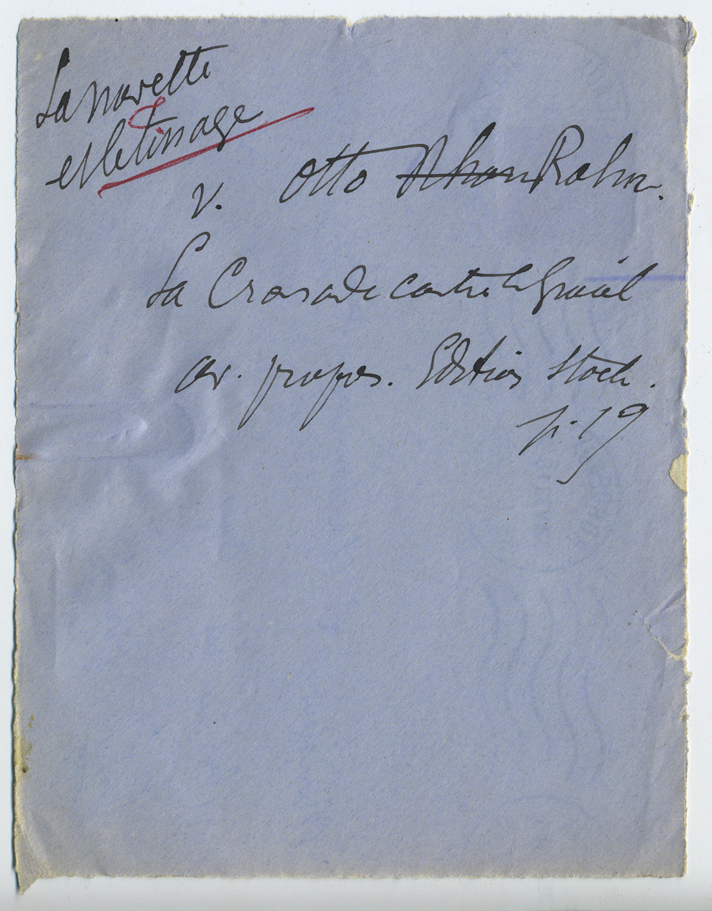 La navette
et le tissage
v. Otto Rhan Rahn.
La Croisade contre le Graal
av. propos. Edition Stock.
p. 19